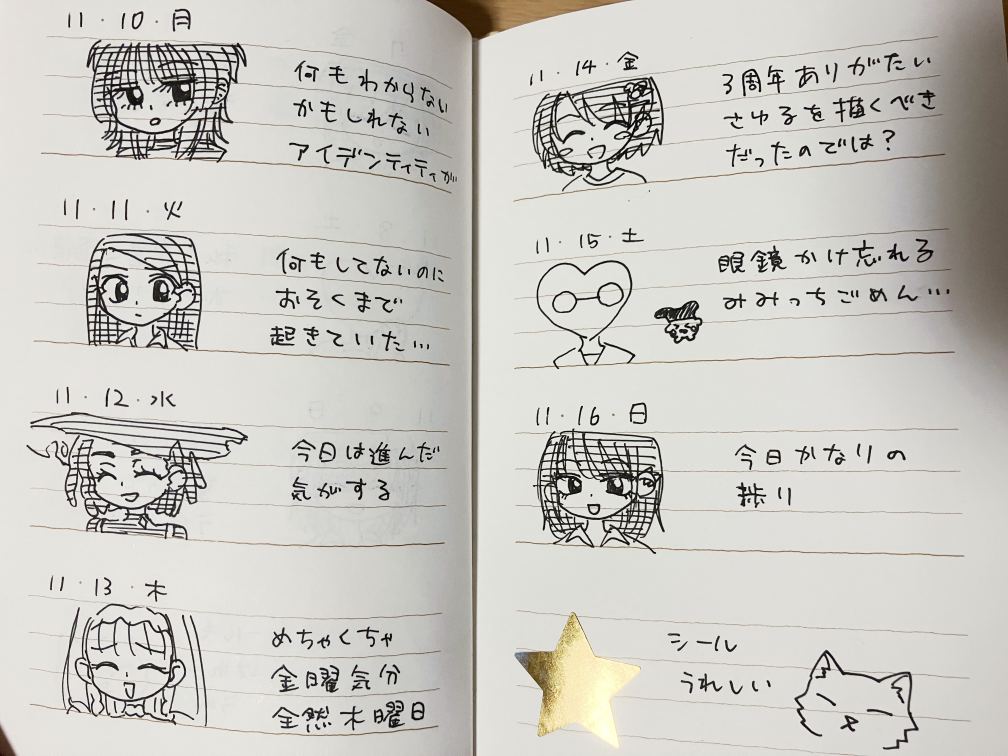 11・10・月
何もわからない
かもしれない
アイデンティティが
11・11・火
何もしてないのに
おそくまで
起きていた…
11・12・水
今日は進んだ
気がする
11・13・木
めちゃくちゃ
金曜気分
全然木曜日
11・14・金
3周年ありがたい
さゆるを描くべき
だったのでは?
11・15・土
眼鏡かけ忘れる
みみっちごめん…
11・16・日
今日かなりの
捗り
シール
うれしい